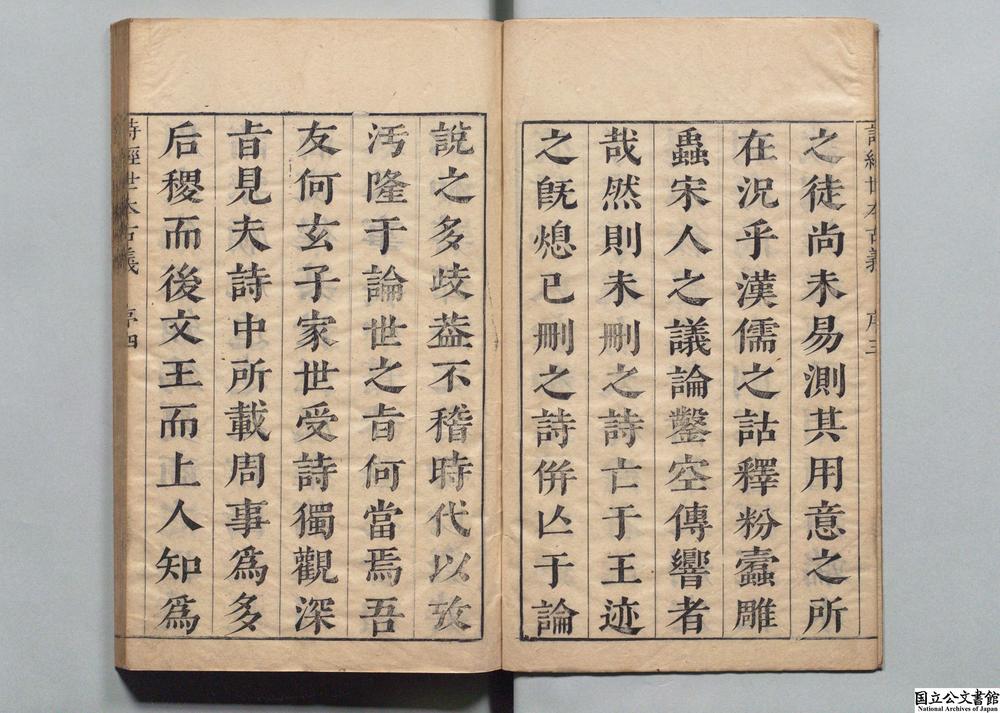 詩經世本古義 序三
之徒尚未易測其用意之所
在況乎漢儒之詁釋粉蠧雕
蟲宋人之議論鑿空傳響者
哉然則未刪之詩亡于王迹
之旣熄已刪之詩併亾于論
說之多歧葢不稽時代以攷
汚隆于論世之㫖何當焉吾
友何玄子家世受詩獨觀深
㫖見夫詩中所載周事爲多
后稷而後文王而上人知爲
詩經世本古義 序四
国立公文書館
National Archives of Japan